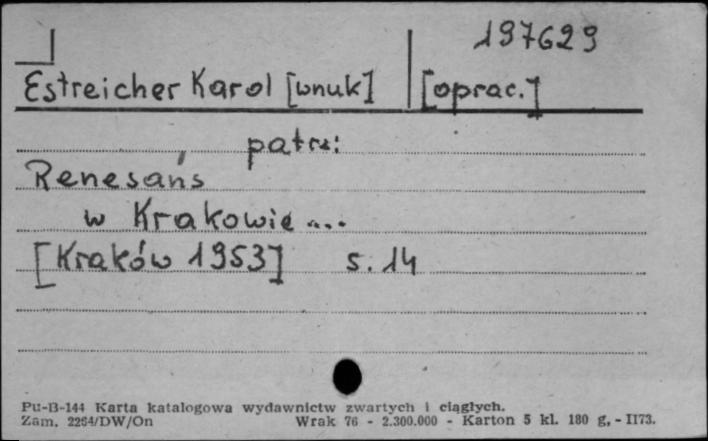 197629
Estreicher Karol [wnuk] [oprac.]
patrz:
Renesans
w Krakowie ....
[Kraków 1953] s. 14
Pu-B-144 Karta katalogowa wydawnictw zwartych i ciągłych.
Zam. 2264/DW/On Wrak 76 - 2.300.000 - Karton 5 kl. 180 g, - II73.